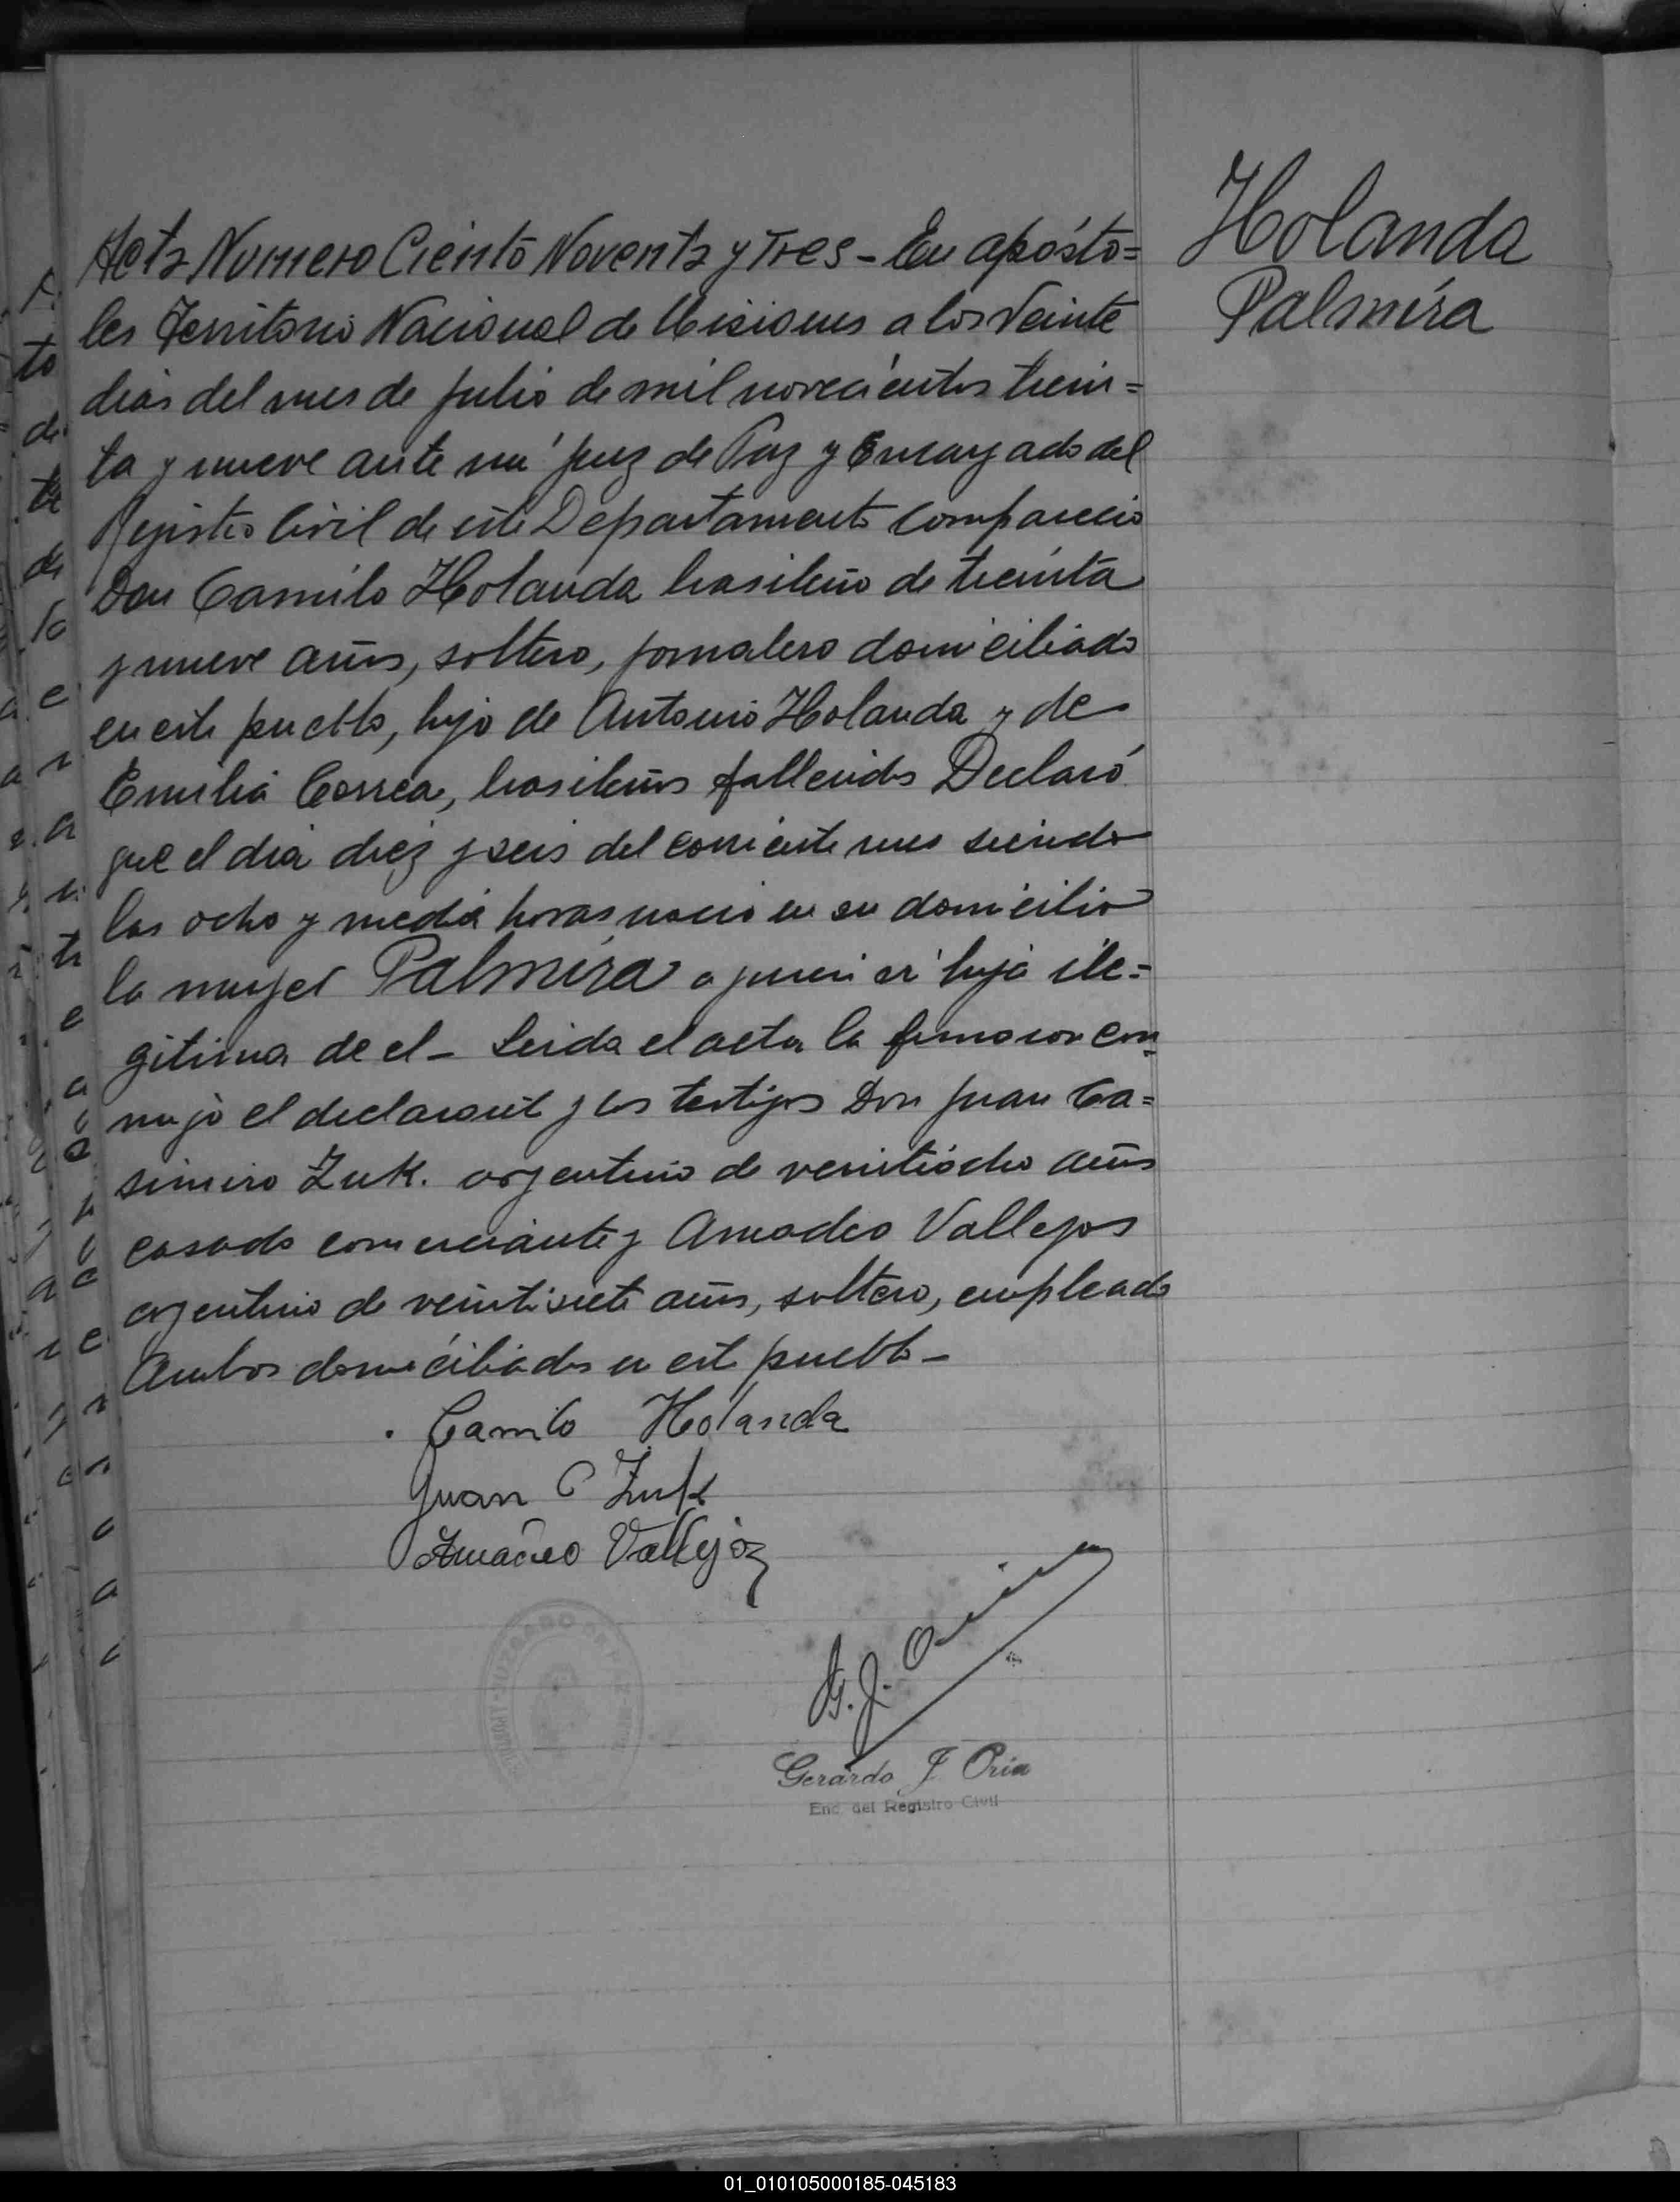 Holanda
Palmira
Acta Numero Ciento Noventa y Tres - En apósto=
les Territorio Nacional de Misiones a los Veinte
dias del mes de julio de mil novecientos trein=
ta y nueve ante mi juez de Paz y Encargado del
Registro Civil de este Departamento compareció
Don Camilo Holanda brasileño de treinta
y nueve años, soltero, jornalero domiciliado
en este pueblo, hijo de Antonio Holanda y de
Emilia Correa, brasileños fallecidos Declaró
que el dia diez y seis del corriente mes siendo
las ocho y media horas nació en su domicilio
la mujer Palmira a quien vi hija ile=
gitima de el - Leida el acta la firmaron con
migo el declarante y los testigos Don Juan Ca=
simiro Zuk. argentino de veintiocho años
casado comerciante y Amadeo Vallejos
argentino de veintisiete años, soltero, empleado
Ambos domiciliados en este pueblo -
Camilo Holanda
Juan C Zuk
Amadeo Vallejoz
G. J. Oria
Gerardo J Oria
Enc. del Registro Civil
01_010105000185-045183